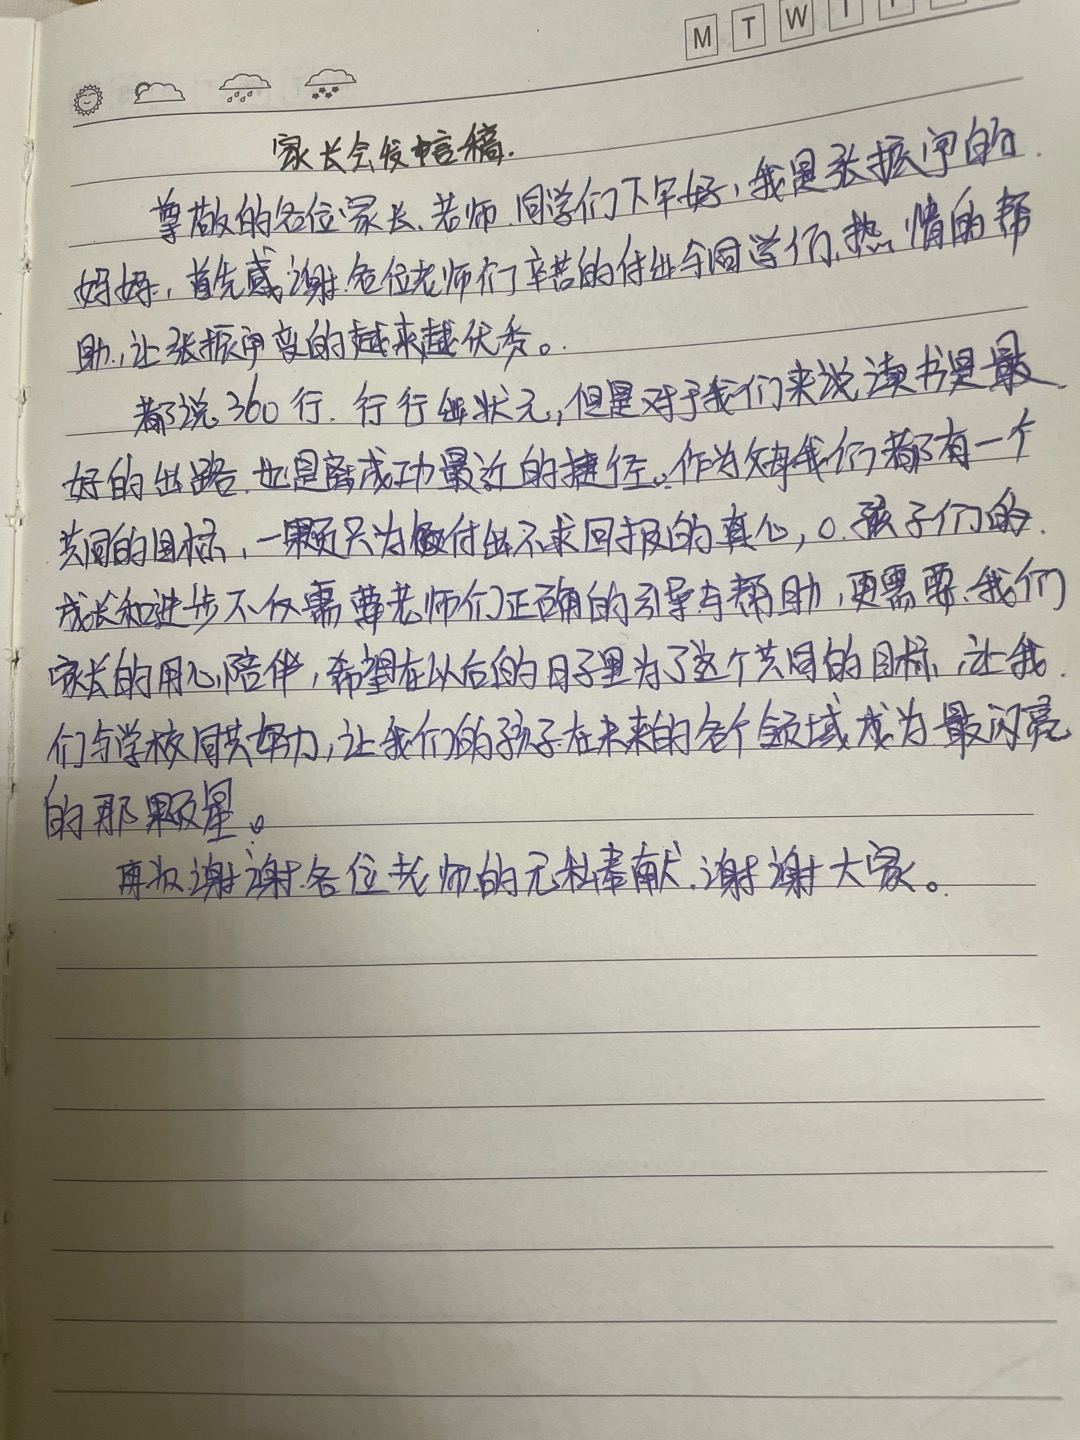 M T W T F
家长会发言稿.
尊敬的各位家长、老师、同学们下午好，我是张振宇的
妈妈，首先感谢各位老师们辛苦的付出与同学们热情的帮
助，让张振宇变的越来越优秀。
都说360行.行行出状元，但是对于我们来说读书是最
好的出路.也是离成功最近的捷径。作为父母我们都有一个
共同的目标，一颗只为付出不求回报的真心，孩子们的
成长和进步不仅需要老师们正确的引导与帮助，更需要我们
家长的用心陪伴，希望在以后的日子里为了这个共同的目标，让我
们与学校同共努力，让我们的孩子在未来的各个领域成为最闪亮
的那颗星。
再次谢谢各位老师的无私奉献.谢谢大家。